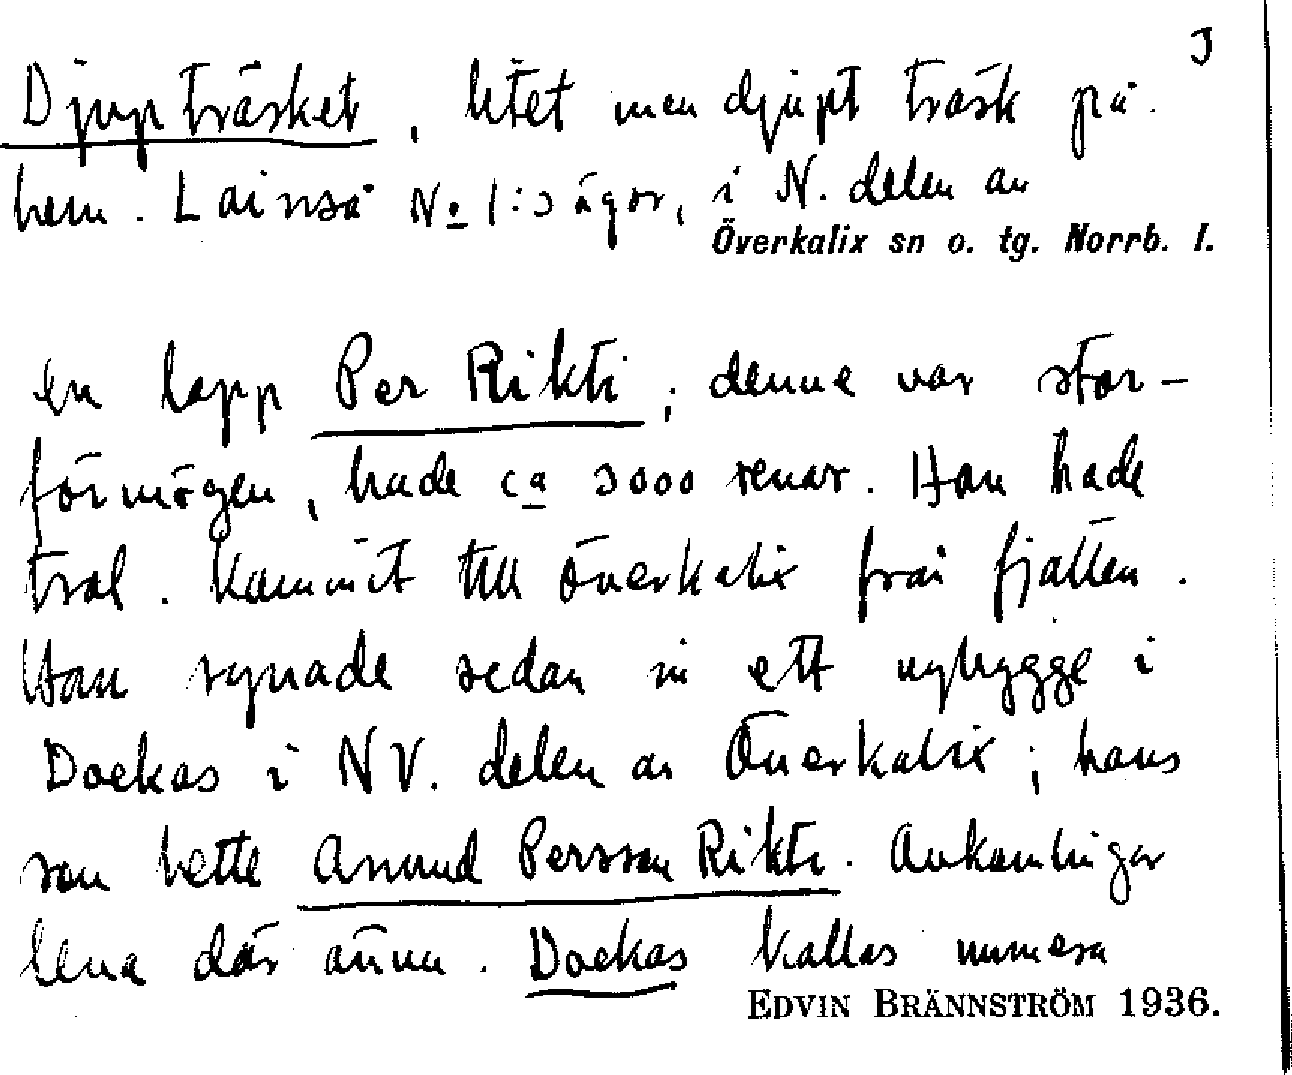 3
Djupträsket, litet men djupt träsk på
hem. Lainså No 1:3 ägor, i N. delen av
Överkalix sn o. tg. Norrb. l.
en lapp Per Rikti; denne var stor-
förmögen, hade ca 3000 renar. Han hade
trol. kommit till Överkalix från fjällen.
Han synade sedan in ett nybygge i
Dockas i NV. delen av Överkalix; hans
son hette Amund Persson Rikti. Avkomlingar
leva där ännu. Dockas kallas numera
EDVIN BRÄNNSTRÖM 1936.